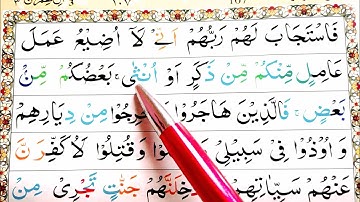 فَاسْتَجَابَ لَهُمْ رَبُّهُمْ اَنِّیْ لَاۤ اُضِیْعُ عَمَلَ
عَامِلٍ مِّنْكُمْ مِّنْ ذَكَرٍ اَوْ اُنْثٰی ۚ بَعْضُكُمْ مِّنْۢ
بَعْضٍ ۚ فَالَّذِیْنَ هَاجَرُوْا مِنْ دِیَارِهِمْ
وَ اُوْذُوْا فِیْ سَبِیْلِیْ وَ قُتِلُوْا لَاُكَفِّرَنَّ
عَنْهُمْ سَیِّاٰتِهِمْ جَنّٰتٍ تَجْرِیْ مِنْ